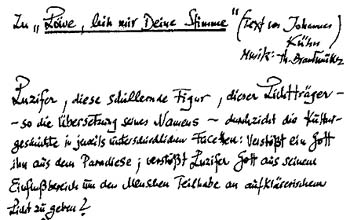 Zu „Löwe, leih mir Deine Stimme" (Text von Johannes
Kühn
Musik: Th. Brandmüller
Luzifer, diese schillernde Figur, dieser Lichtträger –
– so die Übersetzung seines Namens – durchzieht die Kultur-
geschichte in jeweils unterschiedlichen Facetten: Verstößt ein Gott
ihn aus dem Paradiese; verstößt Luzifer Gott aus seinem
Einflußbereich um den Menschen Teilhabe an aufklärerischem
Licht zu geben?